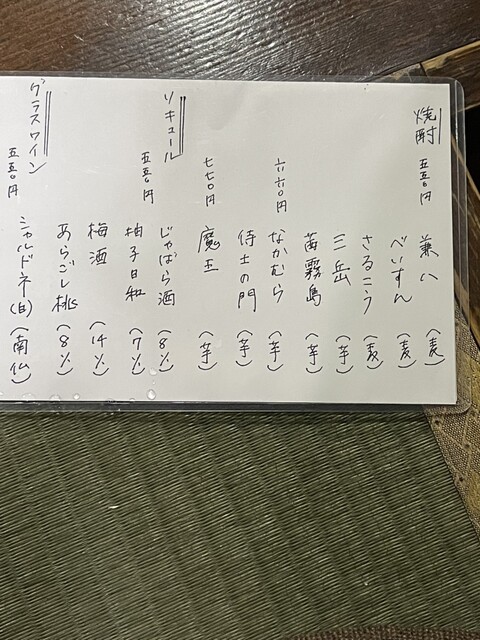 焼酎
五五〇円
兼八（麦）
べいすん（麦）
さるこう（麦）
三岳（芋）
茜霧島（芋）
六六〇円
なかむら（芋）
侍士の門（芋）
七七〇円
魔王（芋）
リキュール
五五〇円
じゃばら酒（8％）
柚子日和（7％）
梅酒（14％）
あらごし桃（8％）
グラスワイン
五五〇円
シャルドネ（白）（南仏）